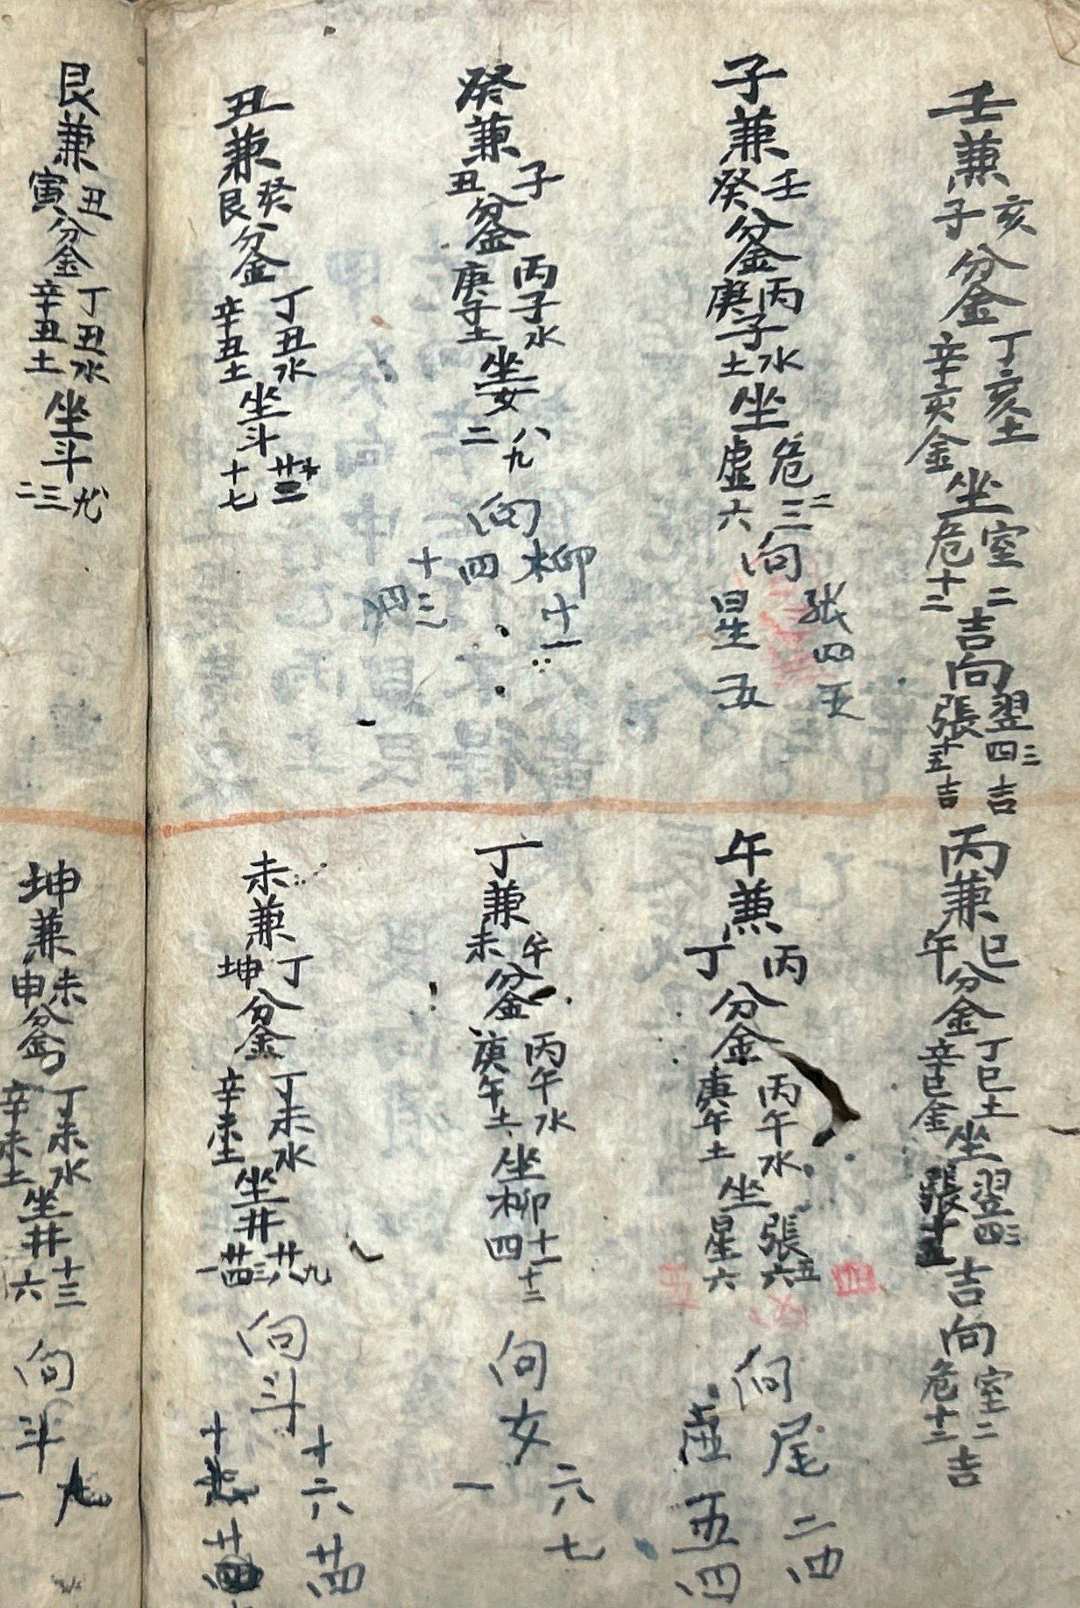 壬兼亥子分金丁亥土辛亥金坐室二危十二吉向翌四三吉張十五吉
子兼壬癸分金丙子水庚子土坐危三二虚六向张四五星五
癸兼子丑分金丙子水庚子土坐女八九二向柳十一四十三
丑兼癸艮分金丁丑水辛丑土坐斗十七
艮兼丑寅分金丁丑水辛丑土坐斗二三
丙兼巳午分金丁巳土辛巳金坐翌四三張十五吉向室二危十二吉
午兼丙丁分金丙午水庚午土坐張五六星六向尾二四五四
丁兼午未分金丙午水庚午土坐柳十一十二四向女六七一
未兼丁坤分金丁未水辛未土坐井廿九八三廿四一向斗十六廿四十
坤兼未申分金丁未水辛未土坐井十三六向斗九一